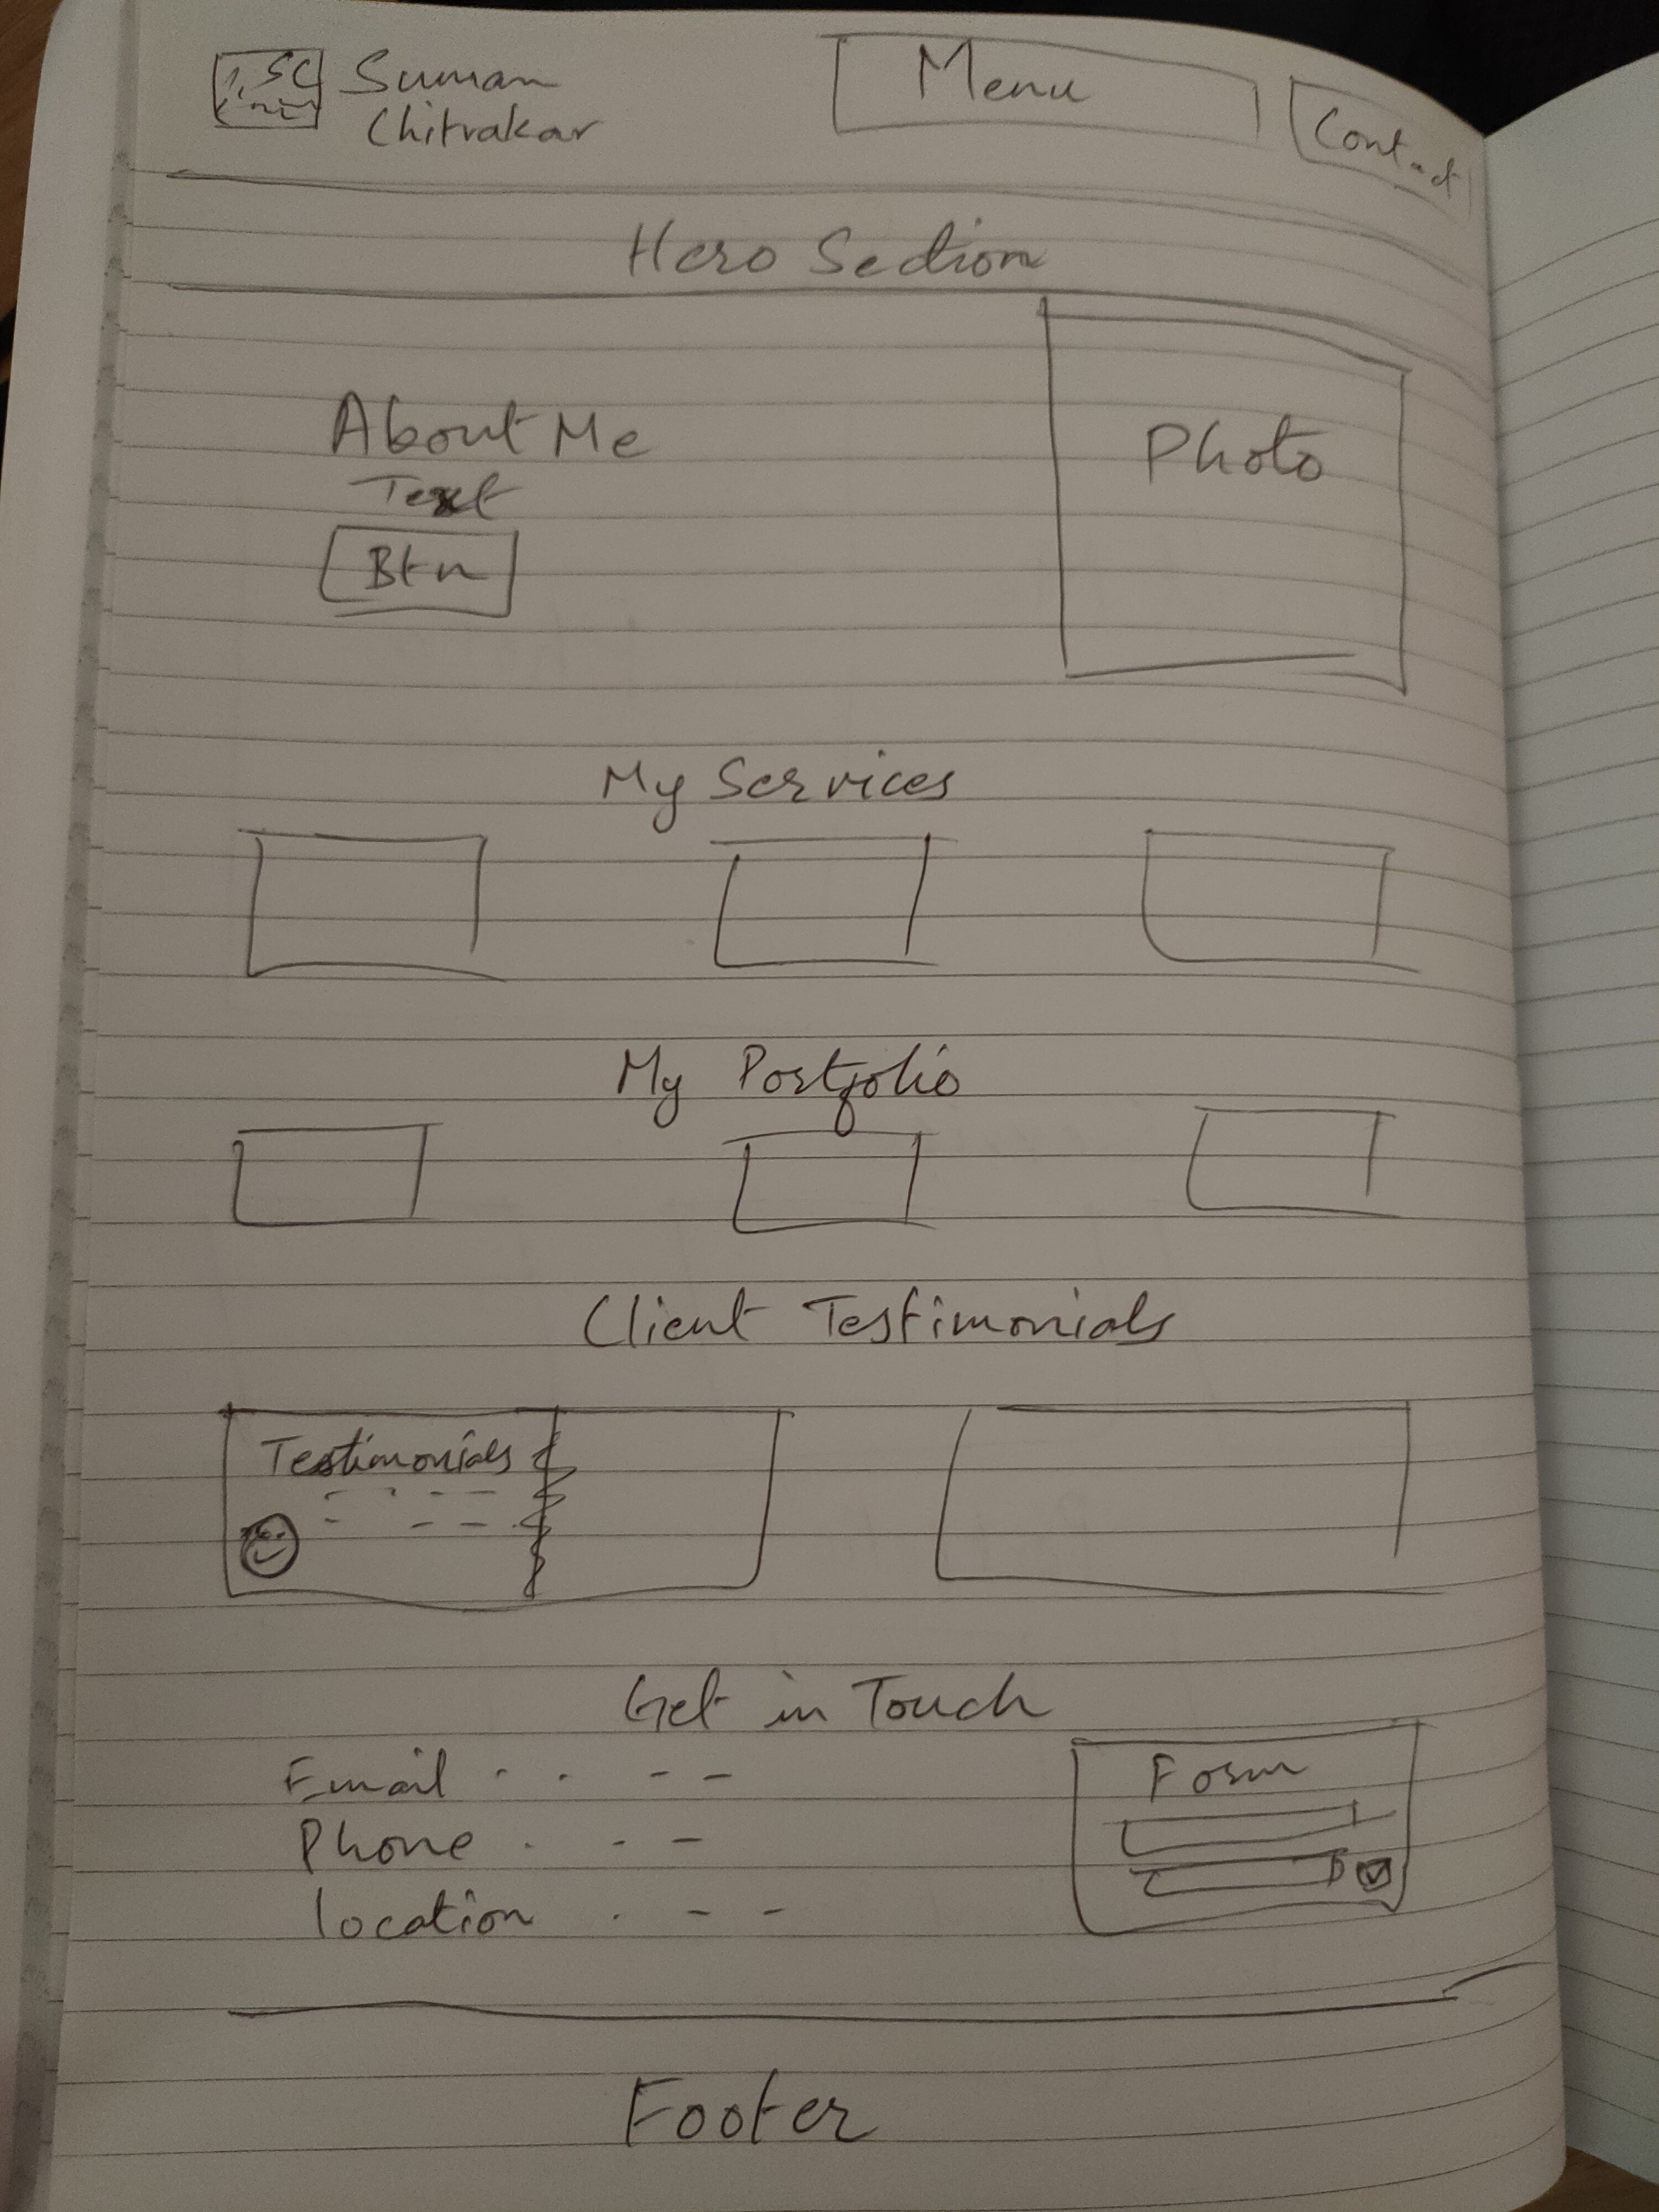 SC
Suman
Chitrakar
Menu
Contact
Hero Section
About Me
Text
Btn
Photo
My Services
My Portfolio
Client Testimonials
Testimonials
Get in Touch
Email
Phone
location
Form
Footer